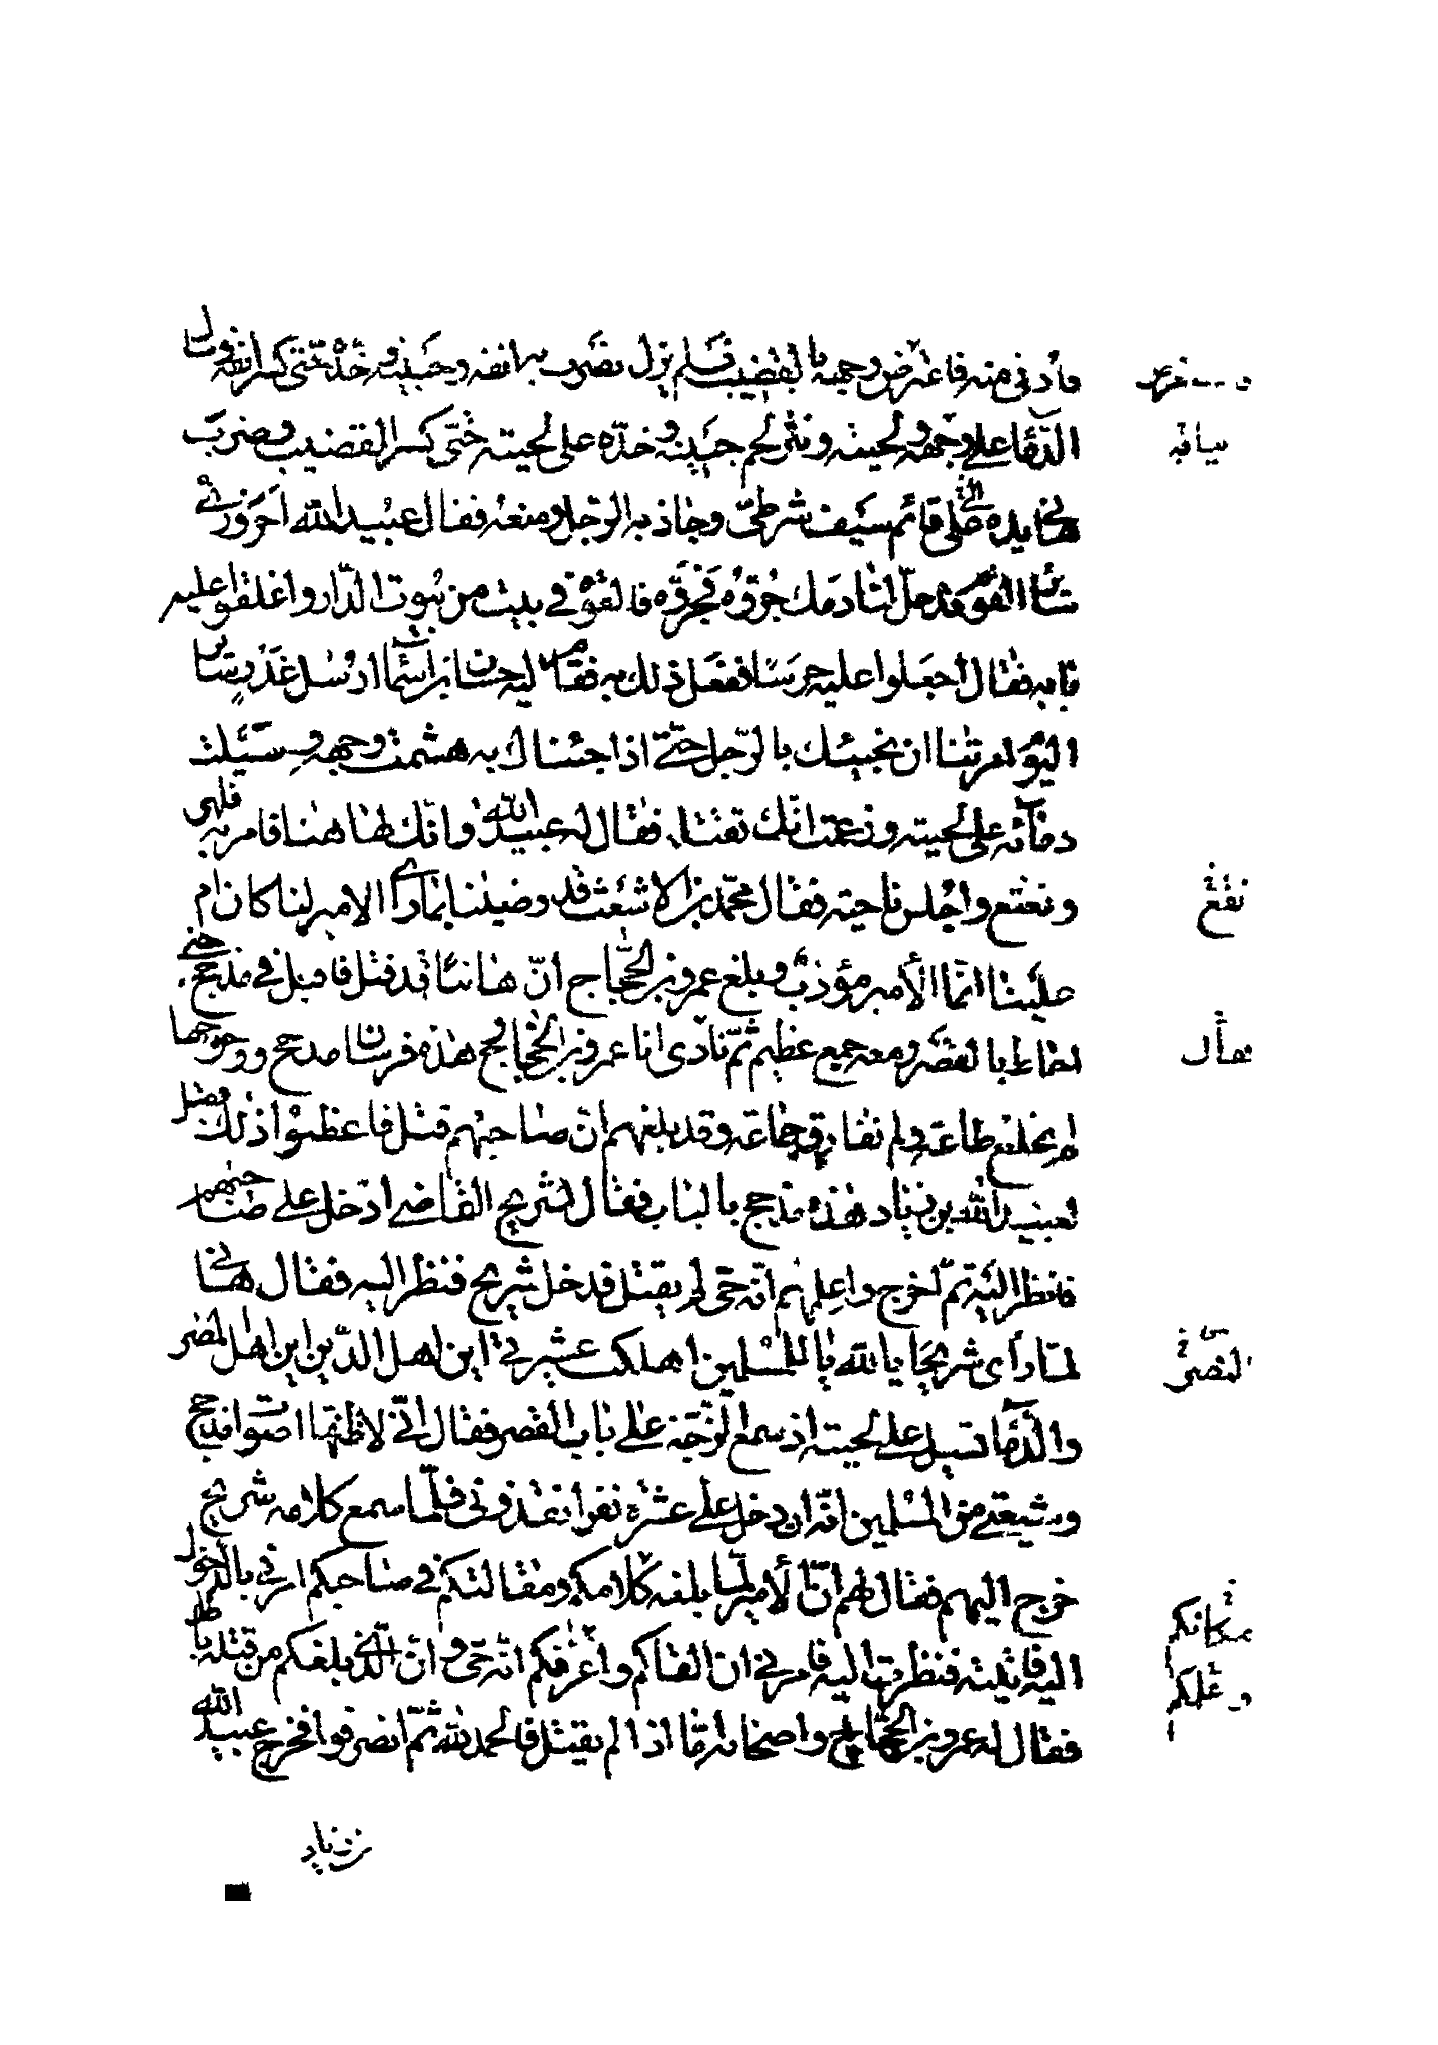 فأدنى منه فاعترض وجهه بالقضيب فلم يزل يضرب بها انفه وجبينه وخدّه حتّى كسر انفه وسال
الدّماء على وجهه ولحيته ونثر لحم جبينه وخدّه على لحيته حتّى كسر القضيب وضرب
هاني يده الى قائم سيف شرطيّ وجاذبه الرّجل ومنعه فقال عبيد الله احروريّ
سائر اليوم قد حلّ لنا دمك جرّوه فجرّوه فالقوه في بيت من بيوت الدّار واغلقوا عليه
بابه فقال اجعلوا عليه حرسا ففعل ذلك به فقام اليه حسان بن اسماء ارسل غدر سائر
اليوم امرتنا ان نجيئك بالرّجل حتّى اذا جئناك به هشمت وجهه وسيّلت
دمائه على لحيته وزعمت انّك تقتله فقال له عبيد الله وانّك لها هنا فامر به فلهز
وتعتع واجلس ناحية فقال محمّد بن الاشعث قد رضينا بما رأى الامير لنا كان ام
علينا انّما الأمير مؤدّب وبلغ عمرو بن الحجّاج انّ هانئا قد قتل فاقبل في مذحج حتى
احاط بالقصر ومعه جمع عظيم ثمّ نادى انا عمرو بن الحجّاج هذه فرسان مذحج ووجوهها
لم يخلع طاعة ولم نفارق جماعة وقد بلغهم انّ صاحبهم قتل فاعظموا ذلك وقيل
لعبيد الله بن زياد هذه مذحج بالباب فقال لشريح القاضي ادخل على صاحبهم
فانظر اليه ثمّ اخرج واعلمهم انّه حيّ لم يقتل فدخل شريح فنظر اليه فقال هاني
لمّا رأى شريحا يا لله يا للمسلمين اهلكت عشيرتي اين اهل الدّين اين اهل المصر
والدّماء تسيل على لحيته اذ سمع الرّجّة على باب القصر فقال انّي لاظنّها اصوات مذحج
وشيعتي من المسلمين انّه ان دخل عليّ عشرة نفر انقذوني فلمّا سمع كلامه شريح
خرج اليهم فقال لهم انّ الأمير لمّا بلغه كلامكم ومقالتكم في صاحبكم امرني بالدّخول
اليه فاتيته فنظرت اليه فامرني ان القاكم واعرّفكم انّه حيّ وانّ الّذي بلغكم من قتله باطل
فقال له عمرو بن الحجّاج واصحابه امّا اذا لم يقتل فالحمد لله ثمّ انصرفوا فخرج عبيد الله
بن زياد